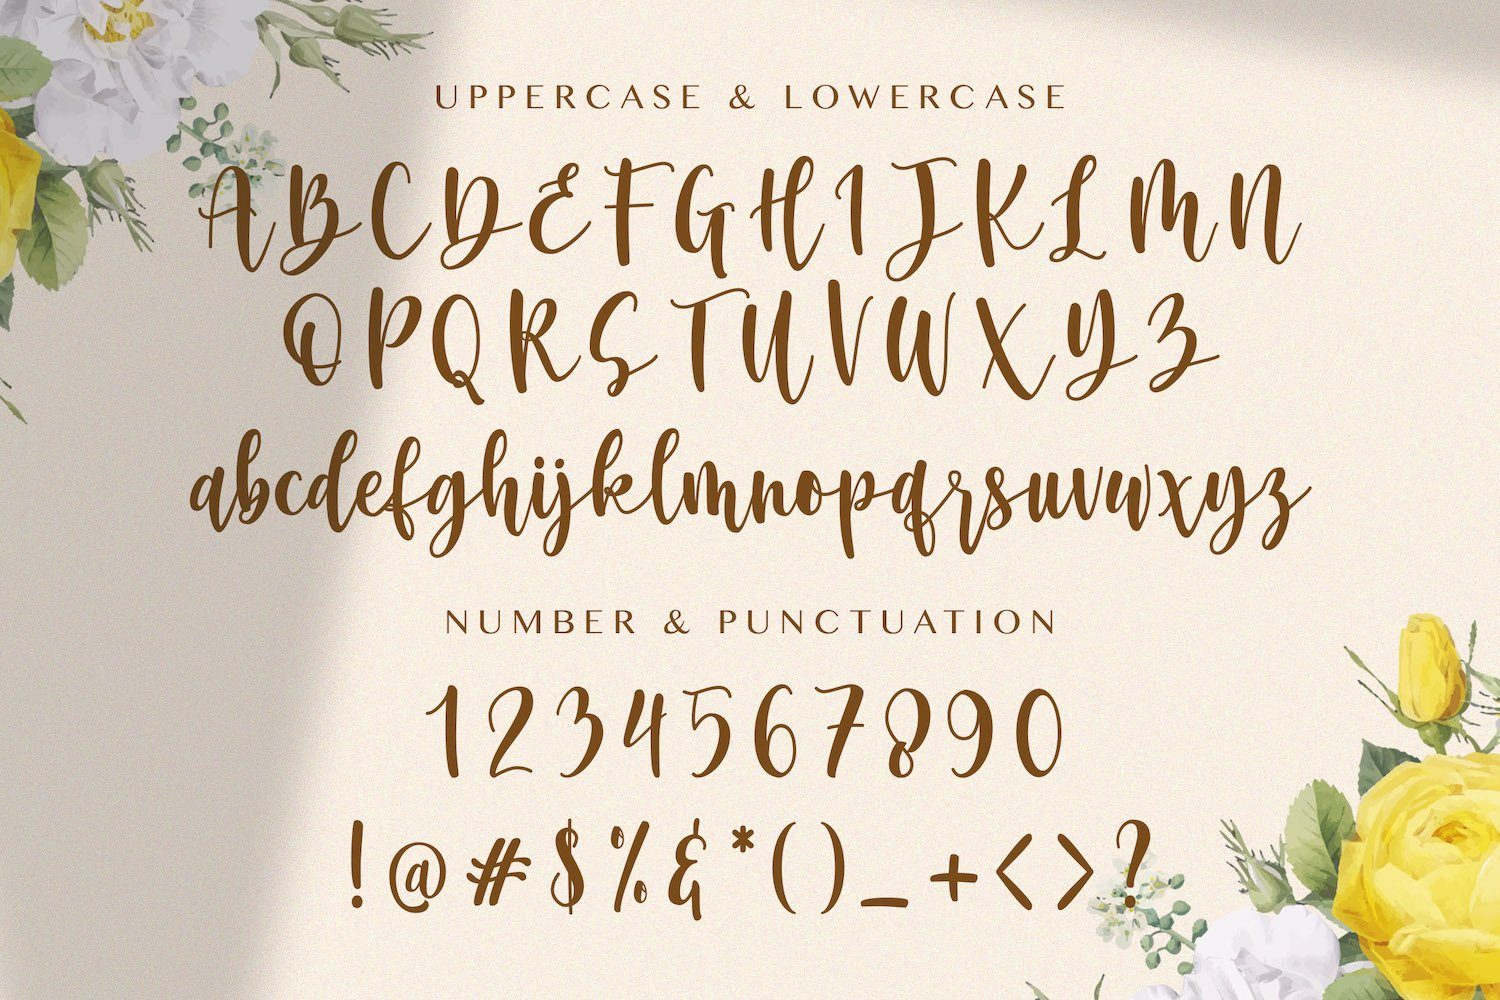 UPPERCASE & LOWERCASE
ABCDEFGHIJKLMN
OPQRSTUVWXYZ
abcdefghijklmnopqrsuvwxyz
NUMBER & PUNCTUATION
1234567890
!@#$%&*()_+<>?